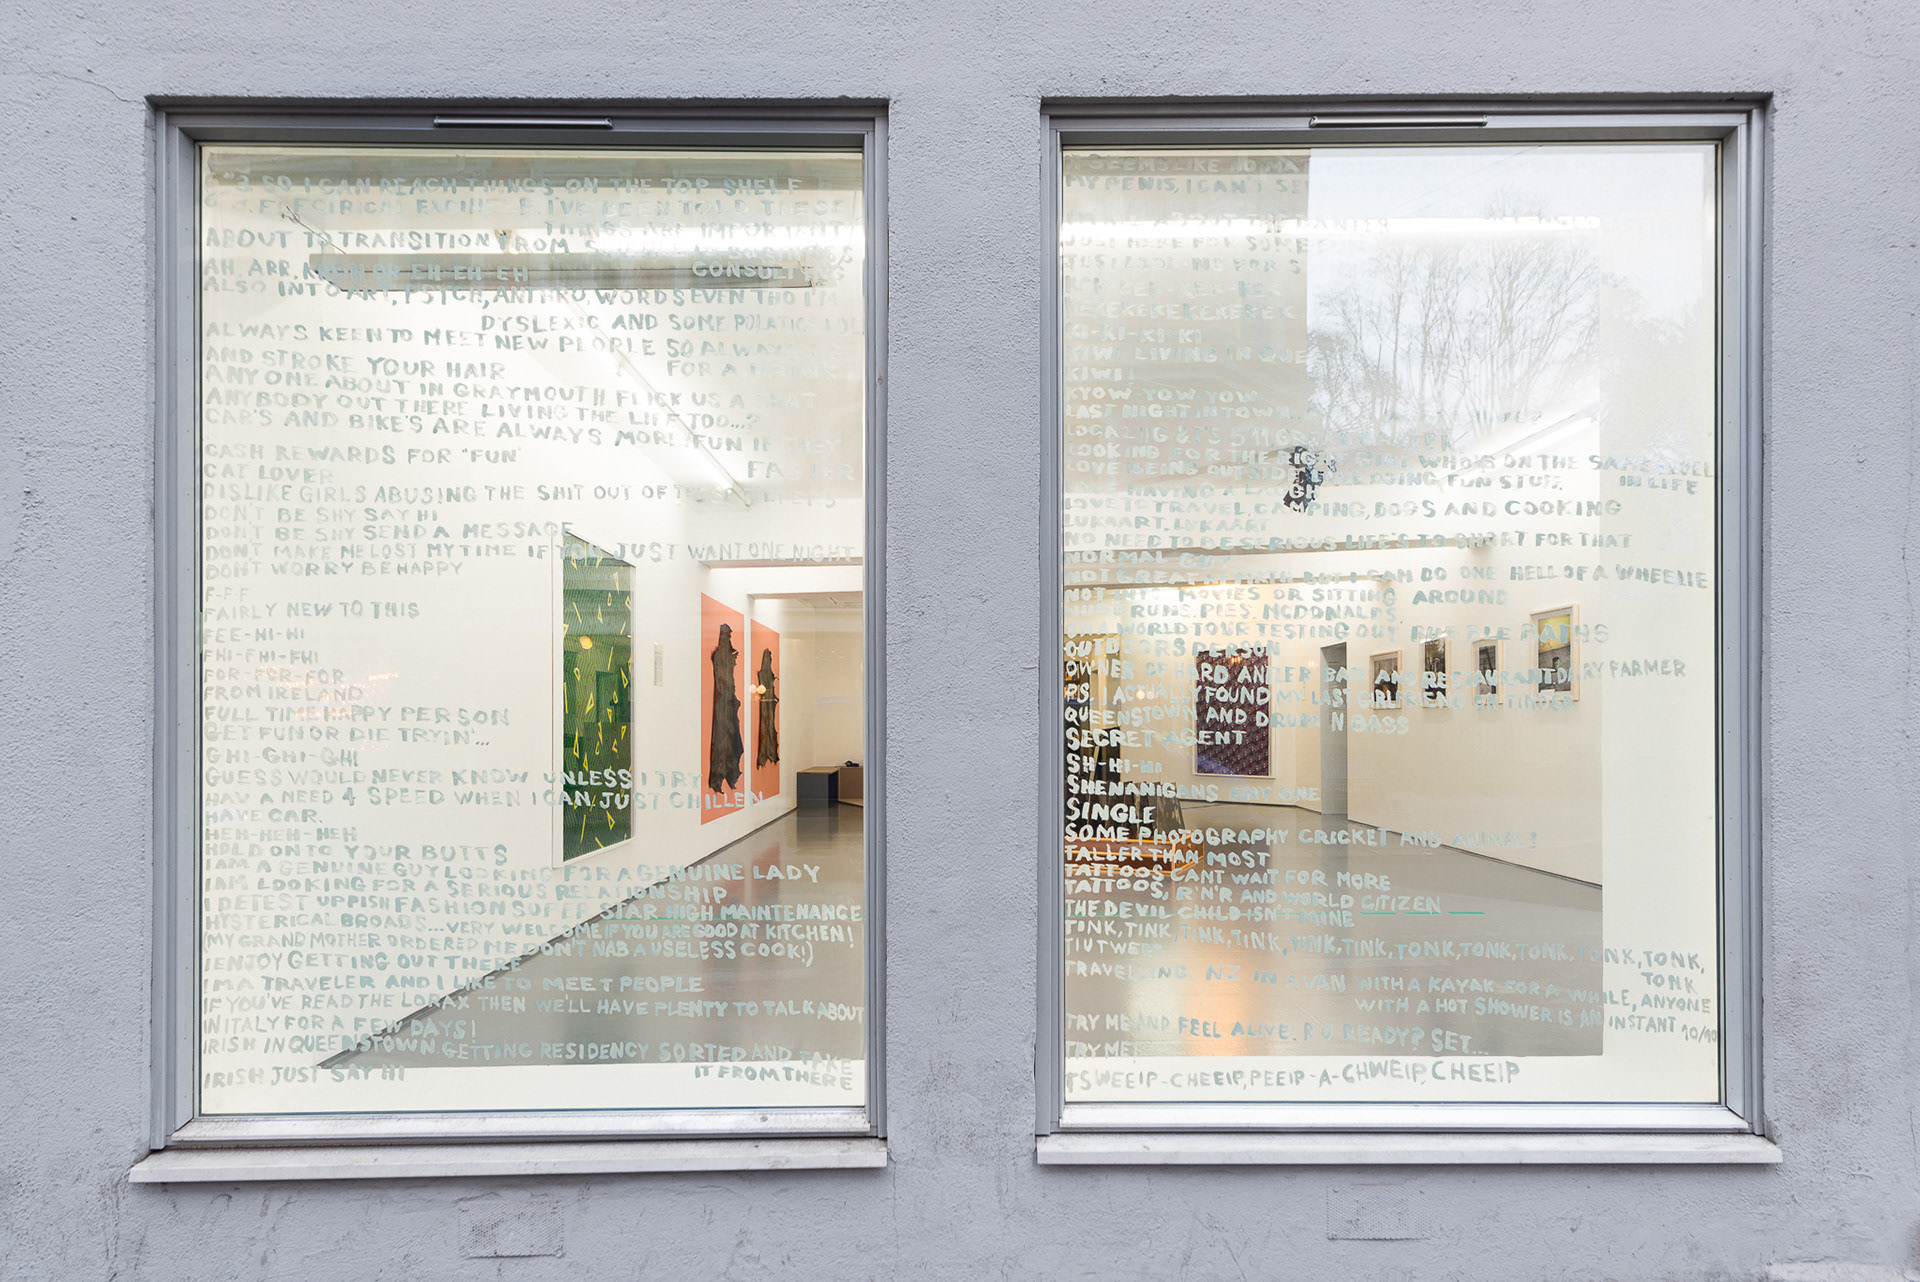 6"3. SO I CAN REACH THINGS ON THE TOP SHELF
I'VE BEEN TOLD THESE
THINGS ARE IMPORTANT
ABOUT TO TRANSITION FROM
AH, ARR, EH-EH-EH
CONSULTING
ALSO INTO ART, PSYCH, ANTHRO, WORDS EVEN THO I'M
DYSLEXIC AND SOME POLATICS LOL
ALWAYS KEEN TO MEET NEW PEOPLE SO ALWAYS
AND STROKE YOUR HAIR
FOR A DRINK
ANYONE ABOUT IN GRAYMOUTH FLICK US A CHAT
ANYBODY OUT THERE LIVING THE LIFE TOO...?
CAR'S AND BIKE'S ARE ALWAYS MORE FUN IF THEY
CASH REWARDS FOR "FUN"
FASTER
CAT LOVER
DISLIKE GIRLS ABUSING THE SHIT OUT OF
DON'T BE SHY SAY HI
DON'T BE SHY SEND A MESSAGE
DON'T MAKE ME LOST MY TIME IF YOU JUST WANT ONE NIGHT
DON'T WORRY BE HAPPY
F-F-F
FAIRLY NEW TO THIS
FEE-HI-HI
FHI-FHI-FHI
FOR-FOR-FOR
FROM IRELAND
FULL TIME HAPPY PERSON
GET FUN OR DIE TRYIN'...
GHI-GHI-GHI
GUESS WOULD NEVER KNOW UNLESS I TRY
HAV A NEED 4 SPEED WHEN I CAN JUST CHILLEN
HAVE CAR.
HEH-HEH-HEH
HOLD ONTO YOUR BUTTS
I AM A GENUINE GUY LOOKING FOR A GENUINE LADY
I AM LOOKING FOR A SERIOUS RELATIONSHIP
I DETEST UPPISH FASHION SUPER STAR HIGH MAINTENANCE
HYSTERICAL BROADS... VERY WELCOME IF YOU ARE GOOD AT KITCHEN!
(MY GRANDMOTHER ORDERED ME DON'T NAB A USELESS COOK!)
I ENJOY GETTING OUT THERE
I'M A TRAVELER AND I LIKE TO MEET PEOPLE
IF YOU'VE READ THE LORAX THEN WE'LL HAVE PLENTY TO TALK ABOUT
IN ITALY FOR A FEW DAYS!
IRISH IN QUEENSTOWN. GETTING RESIDENCY SORTED AND TAKE
IT FROM THERE
IRISH JUST SAY HI
SEEMS LIKE NO MA
MY PENIS, I CAN'T SE
ABOUT THE
JUST HERE FOR SOME
JUST LOOKING FOR S
KEKEKEKEKEKEKEK
KI-KI-KI-KI
KIWI LIVING IN QUE
KIWI!
KYOW YOW YOW
LAST NIGHT IN TOWN...
LOOKING FOR THE RIGHT GIRL WHO'S ON THE SAME LEVEL
IN LIFE
LOVE BEING OUTSIDE LOVE DOING FUN STUFF
LOVE HAVING A LAUGH
LOVE TO TRAVEL, CAMPING, DOGS AND COOKING
LUKAART, LUKAART
NO NEED TO BE SERIOUS LIFE'S TO SHORT FOR THAT
NORMAL GUY
NOT GREAT WITH BUT I CAN DO ONE HELL OF A WHEELIE
NOT INTO MOVIES OR SITTING AROUND
NUDE RUNS. PIES. MCDONALDS
ON A WORLD TOUR TESTING OUT BUBBLE BATHS
OUTDOORS PERSON
OWNER OF HARD ANTLER BAR AND RESTAURANT DAIRY FARMER
PS. I ACTUALLY FOUND MY LAST GIRLFRIEND ON TINDER
QUEENSTOWN AND DRUM N BASS
SECRET AGENT
SH-HI-HI
SHENANIGANS ANYONE
SINGLE
SOME PHOTOGRAPHY CRICKET AND ANIMALS
TALLER THAN MOST
TATTOOS CANT WAIT FOR MORE
TATTOOS, R'N'R AND WORLD CITIZEN
THE DEVIL CHILD ISN'T MINE
TINK, TINK, TINK, TINK, TINK, TINK, TONK, TONK, TONK, TONK, TONK,
TONK
TRAVELLING NZ IN A VAN WITH A KAYAK FOR A WHILE, ANYONE
WITH A HOT SHOWER IS AN INSTANT 10/10
TRY ME AND FEEL ALIVE. R U READY? SET...
TRY ME!
TSWEEIP-CHEEIP, PEEIP-A-CHWEIP, CHEEIP